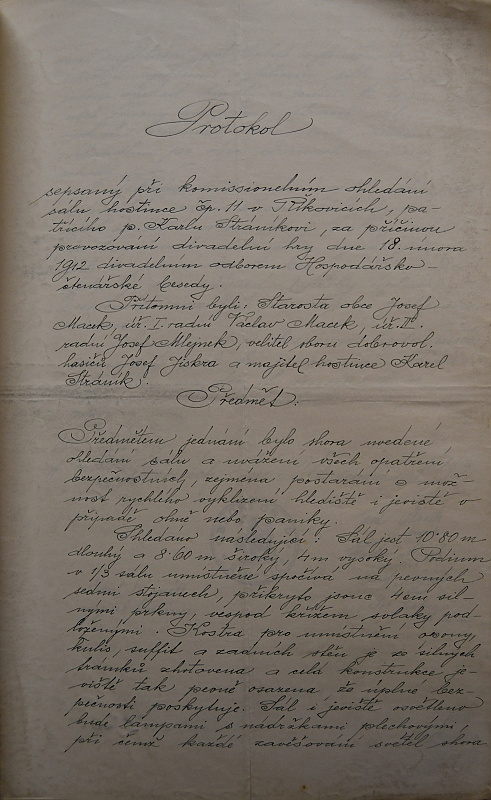 Protokol
sepsaný při komissionelním ohledání
sálu hostince čp. 11 v Třkovicích, pa-
třícího p. Karlu Stráníkovi, za příčinou
provozování divadelní hry dne 18. února
1912 divadelním odborem Hospodářsko-
čtenářské besedy.
Přítomni byli: Starosta obce Josef
Macek, úř. I. radní Václav Macek, úř. II.
radní Josef Mlejnek, velitel sboru dobrovol.
hasičů Josef Jiskra a majitel hostince Karel
Stráník.
Předmět:
Předmětem jednání bylo shora uvedené
ohledání sálu a uvážení všech opatření
bezpečnostních, zejména postaráno o mož-
nost rychlého vyklizení hlediště i jeviště v
případě ohně nebo paniky.
Shledáno následující: Sál jest 10·80 m
dlouhý a 8·60 m široký, 4 m vysoký. Podium
v 1/3 sálu umístněné spočívá na pevných
sedmi stojanech, přikryto jsouc 4 cm sil-
nými prkny, vespod křížem svlaky pod-
loženými. Kostra pro umístnění opony,
kulis, suffit a zadních stěn je ze silných
trámků zhotovena a celá konstrukce je-
viště tak pevně osazena že úplně bez-
pečnosti poskytuje. Sál i jeviště osvětleno
bude lampami s nádržkami plechovými,
při čemž každé zavěšování světel shora